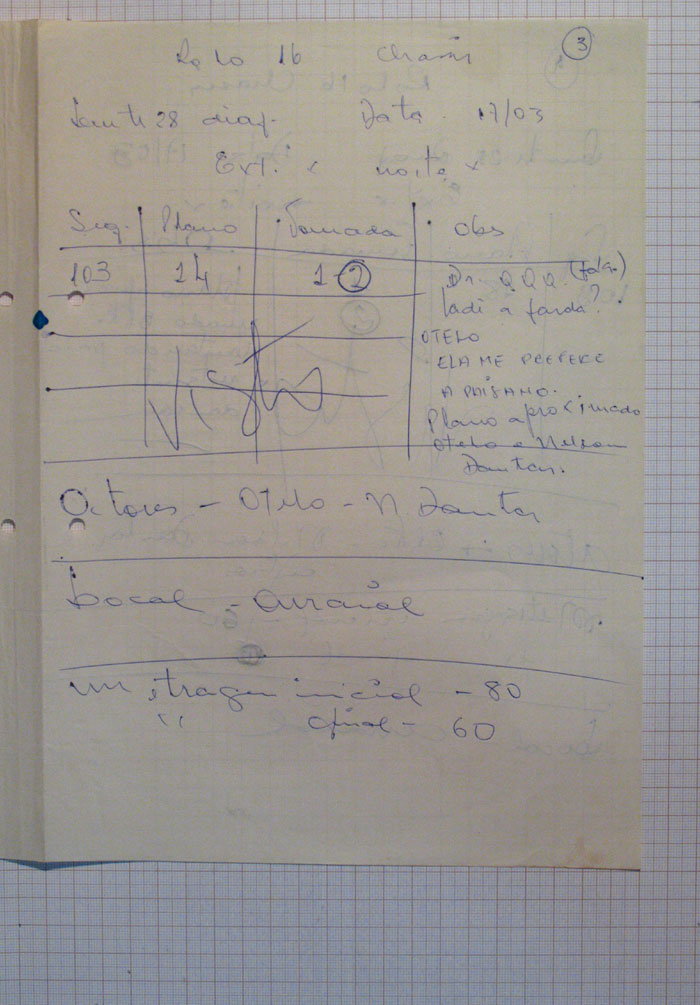 3
Rolo 16 Chassi
Lente 28 diaf. Data 17/03
Ext. x noite x
Seq. Plano Tomada Obs
103 14 1-2 Dr. Q.Q.Q. (fala.)
a farda?
OTELO
ELA ME PREFERE
A PAISANO.
Plano aproximado
Otelo e Nelson
Dantas.
Visto
Actores - Otelo - N. Dantas
Local - Arraial
metragem inicial - 80
" final - 60